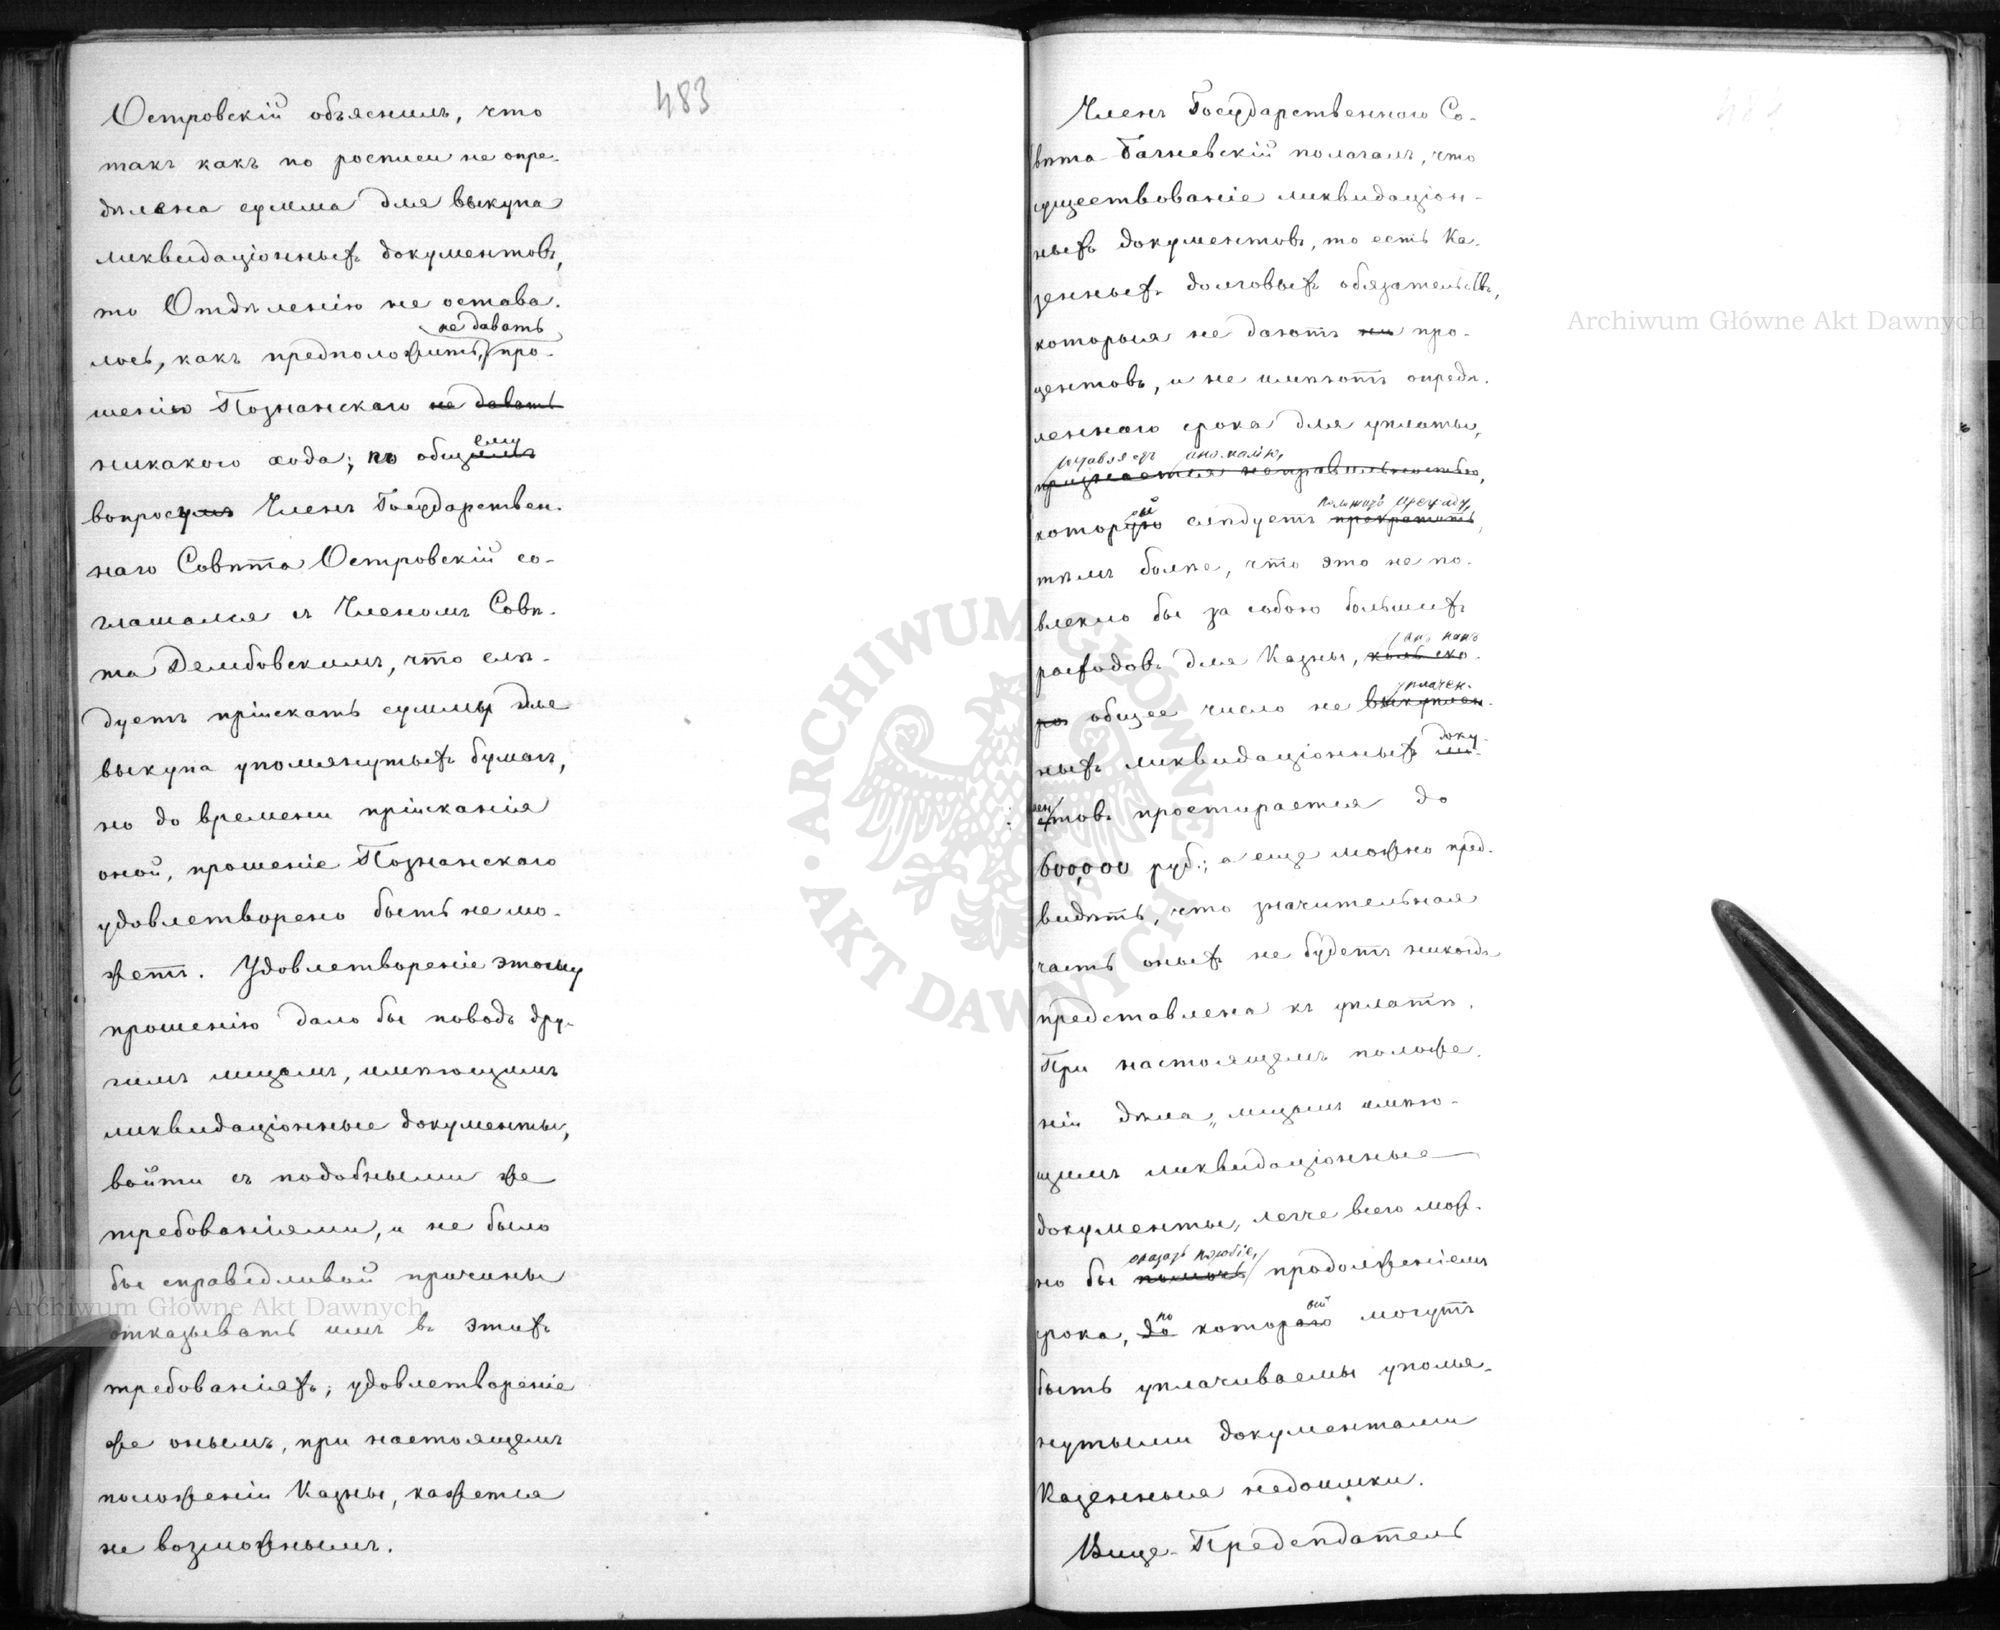 483
Островскій объяснилъ, что
такъ какъ по росписи не опре-
дѣлена сумма для выкупа
ликвидаціонныхъ документовъ,
то Отдѣленію не остава-
не давать
лось, какъ предположить, про-
шенію Познанскаго не давать
никакого хода; по общему
вопросу Членъ Государствен-
наго Совѣта Островскій со-
глашался съ Членомъ Совѣ-
та Дембовскимъ, что слѣ-
дуетъ пріискать суммы для
выкупа упомянутыхъ бумагъ,
но до времени пріисканія
оной, прошеніе Познанскаго
удовлетворено быть не мо-
жетъ. Удовлетвореніе этому
прошенію дало бы поводъ дру-
гимъ лицамъ, имѣющимъ
ликвидаціонные документы,
войти съ подобными же
требованіями, и не было
бы справедливой причины
отказывать имъ въ этихъ
требованіяхъ; удовлетвореніе
же онымъ, при настоящемъ
положеніи Казны, кажется
не возможнымъ.
484
Членъ Государственнаго Со-
вѣта Багневскій полагалъ, что
существованіе ликвидаціон-
ныхъ документовъ, то есть Ка-
зенныхъ долговыхъ обязательствъ,
которыя не даютъ про-
центовъ, и не имѣютъ опредѣ-
леннаго срока для уплаты,
составляетъ аномалію,
признается неправильностью,
которой слѣдуетъ прекратить,
положить преграду,
тѣмъ болѣе, что это не по-
влекло бы за собою большихъ
такъ какъ
расходовъ для Казны, коль ско-
уплачен-
ро общее число не выкуплен-
ныхъ ликвидаціонныхъ доку-
ментовъ простирается до
600,000 руб.; а еще можно пред-
видѣть, что значительная
часть оныхъ не будетъ никогда
представлена къ уплатѣ.
При настоящемъ положе-
ніи дѣла, лицамъ имѣю-
щимъ ликвидаціонные
документы, легче всего мож-
оказать пособіе,
но бы помочь продолженіемъ
по
срока, до которой могутъ
быть уплачиваемы упомя-
нутыми документами
Казенныя недоимки.
Вице-Предсѣдатель
Archiwum Główne Akt Dawnych
Archiwum Główne Akt Dawnych
ARCHIWUM GŁÓWNE AKT DAWNYCH